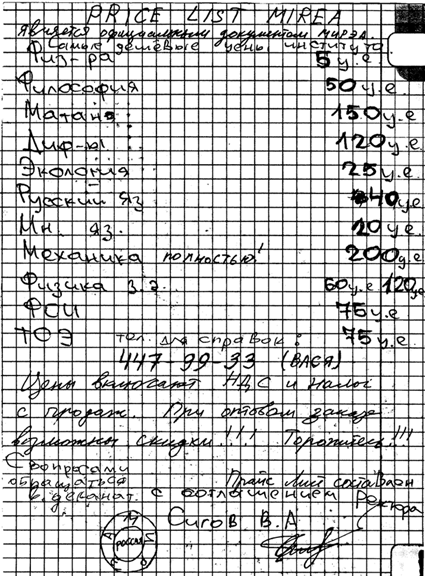 PRICE LIST MIREA
является официальным документом МИРЭА.
Самые дешёвые цены института
Физ-ра 5 у.е.
Философия 50 у.е.
Матан 150 у.е
Диф-ы 120 у.е
Экология 25 у.е
Русский яз 40 у.е
Ин. яз. 20 у.е
Механика полностью! 200 у.е
Физика з.э. 60 у.е 120 у.е
ФОИ 75 у.е
ТОЭ тел. для справок: 75 у.е
447-99-33 (ВАСЯ)
Цены включают НДС и налог
с продаж. При оптовом заказе
возможны скидки!!! Торопитесь!!!
С вопросами
обращаться
в деканат.
Прайс Лист составлен
с соглашением Ректора
Сигов В.А
РОССИЯ